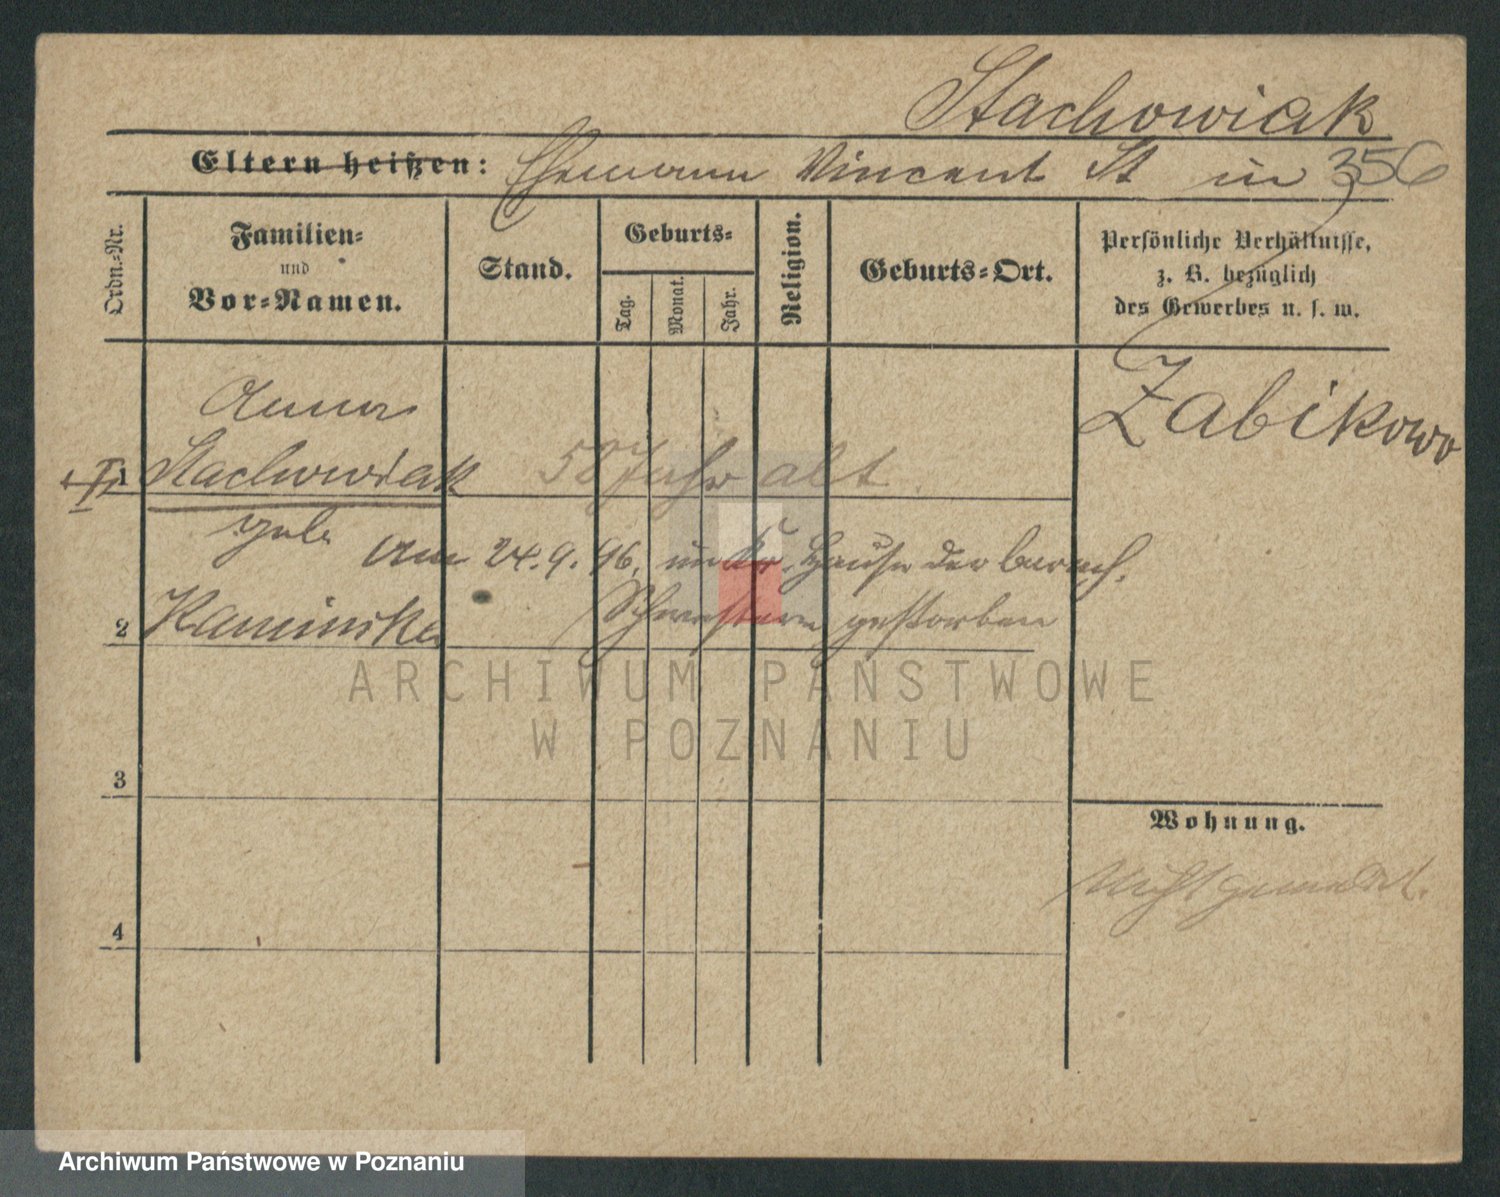 Stachowiak
Eltern heißen: Ehemann Vincent St in 356
Ordn.-Nr.
Familien-
und
Vor-Namen.
Stand.
Geburts-
Tag.
Monat.
Jahr.
Religion.
Geburts-Ort.
Persönliche Verhältnisse,
z. B. bezüglich
des Gewerbes u. s. w.
Anna
Zabikowo
1 Stachowiak 58 Jahr alt
geb.
am 24.9.96. im Kr. Hause der barmh.
2 Kaminska Schwestern gestorben
3
Wohnung.
Nicht gemeldet.
4
ARCHIWUM PAŃSTWOWE
W POZNANIU
Archiwum Państwowe w Poznaniu